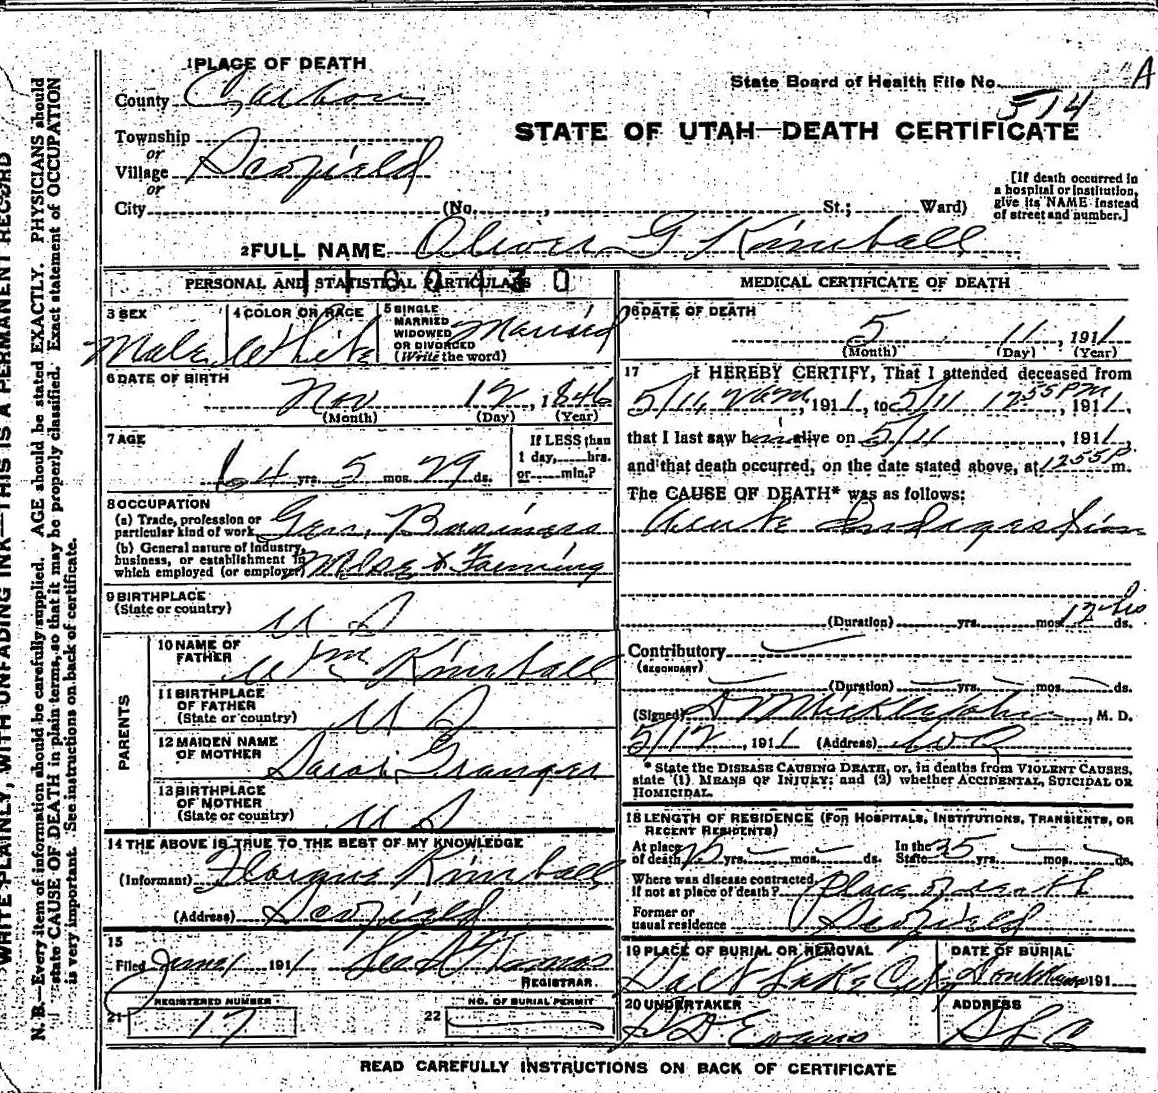 1 PLACE OF DEATH
County Carbon
Township
or
Village Scofield
or
City (No. , St.; Ward)
State Board of Health File No. 514 A
STATE OF UTAH—DEATH CERTIFICATE
[If death occurred in
a hospital or institution,
give its NAME instead
of street and number.]
2 FULL NAME Oliver G Kimball
PERSONAL AND STATISTICAL PARTICULARS
1100430
3 SEX
Male
4 COLOR OR RACE
White
5 SINGLE
MARRIED
WIDOWED
OR DIVORCED
(Write the word)
Married
6 DATE OF BIRTH
Nov 12, 1846
(Month) (Day) (Year)
7 AGE
64 yrs. 5 mos. 29 ds.
If LESS than
1 day, hrs.
or min.?
8 OCCUPATION
(a) Trade, profession or
particular kind of work Gen. Business
(b) General nature of industry,
business, or establishment in
which employed (or employer) Mdse & Farming
9 BIRTHPLACE
(State or country)
U S
PARENTS
10 NAME OF
FATHER
Wm Kimball
11 BIRTHPLACE
OF FATHER
(State or country)
U S
12 MAIDEN NAME
OF MOTHER
Sarah Granger
13 BIRTHPLACE
OF MOTHER
(State or country)
U S
14 THE ABOVE IS TRUE TO THE BEST OF MY KNOWLEDGE
(Informant) Kimball
(Address) Scofield
15
Filed June 1 1911 Thomas
REGISTRAR
REGISTERED NUMBER
21 17
NO. OF BURIAL PERMIT
22
MEDICAL CERTIFICATE OF DEATH
16 DATE OF DEATH
5 11, 1911
(Month) (Day) (Year)
17 I HEREBY CERTIFY, That I attended deceased from
5/11, , 1911, to 5/11 12 55 PM, 1911,
that I last saw him alive on 5/11, 1911,
and that death occurred, on the date stated above, at 12 55 P. m.
The CAUSE OF DEATH* was as follows:
Acute Indigestion
(Duration) yrs. mos. 12 ds.
Contributory
(SECONDARY)
(Duration) yrs. mos. ds.
(Signed) , M. D.
5/12, 1911 (Address)
* State the DISEASE CAUSING DEATH, or, in deaths from VIOLENT CAUSES,
state (1) MEANS OF INJURY; and (2) whether ACCIDENTAL, SUICIDAL OR
HOMICIDAL.
18 LENGTH OF RESIDENCE (FOR HOSPITALS, INSTITUTIONS, TRANSIENTS, OR
RECENT RESIDENTS)
At place
of death yrs. mos. ds.
In the
State 35 yrs. mos. ds.
Where was disease contracted,
if not at place of death? Place of death
Former or
usual residence Scofield
19 PLACE OF BURIAL OR REMOVAL
Salt Lake City
DATE OF BURIAL
Don't know 191
20 UNDERTAKER
S D Evans
ADDRESS
S L C
READ CAREFULLY INSTRUCTIONS ON BACK OF CERTIFICATE
WRITE PLAINLY, WITH UNFADING INK—THIS IS A PERMANENT RECORD
N. B.—Every item of information should be carefully supplied. AGE should be stated EXACTLY. PHYSICIANS should
state CAUSE OF DEATH in plain terms, so that it may be properly classified. Exact statement of OCCUPATION
is very important. See instructions on back of certificate.